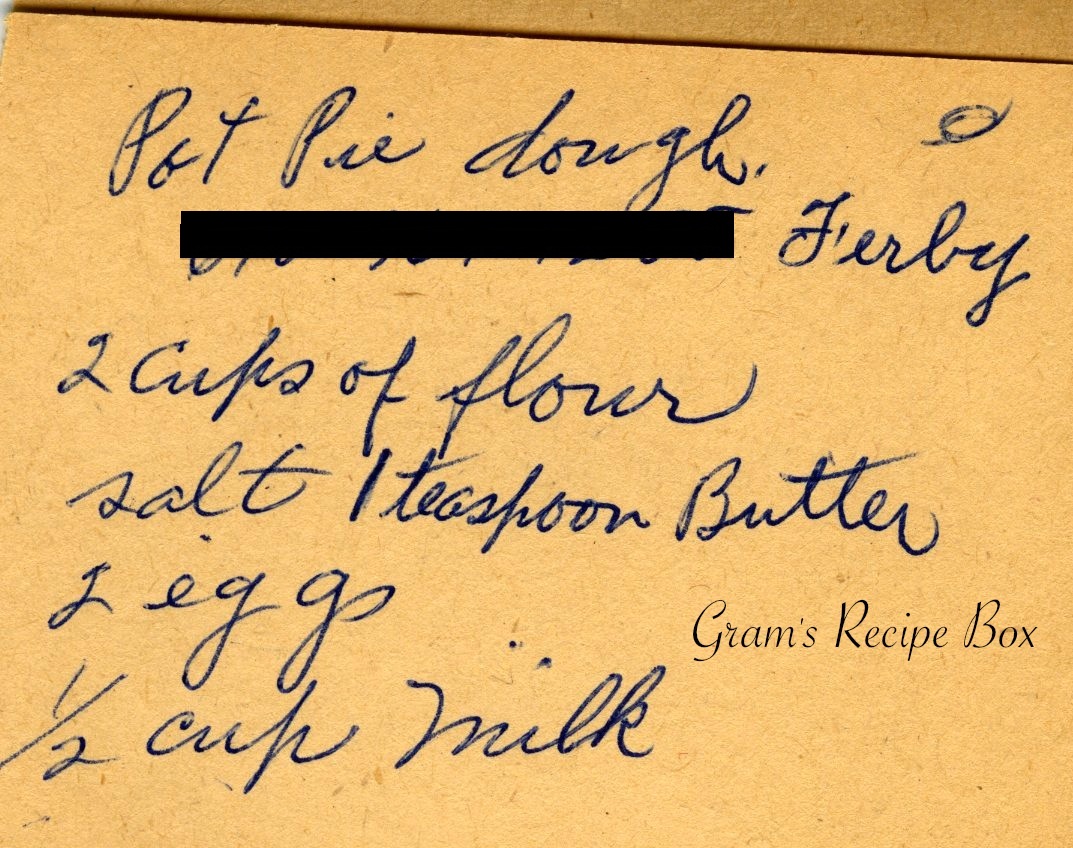 Pot Pie dough.
Ferby
2 cups of flour
salt 1 teaspoon Butter
2 eggs
Gram's Recipe Box
1/2 cup milk